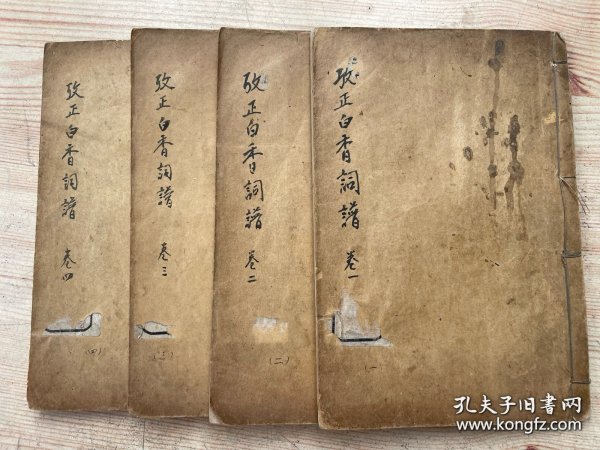 攷正白香詞譜 卷一
(一)
攷正白香詞譜 卷二
(二)
攷正白香詞譜 卷三
(三)
攷正白香詞譜 卷四
(四)
孔夫子旧书网
www.kongfz.com